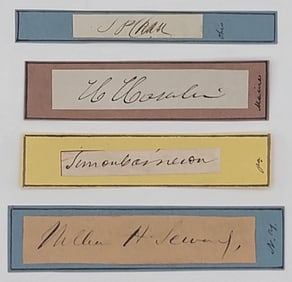 S P Chase
Ohio
H Hamlin
Maine
Simon Cameron
Pa
William H. Seward,
N. Y.